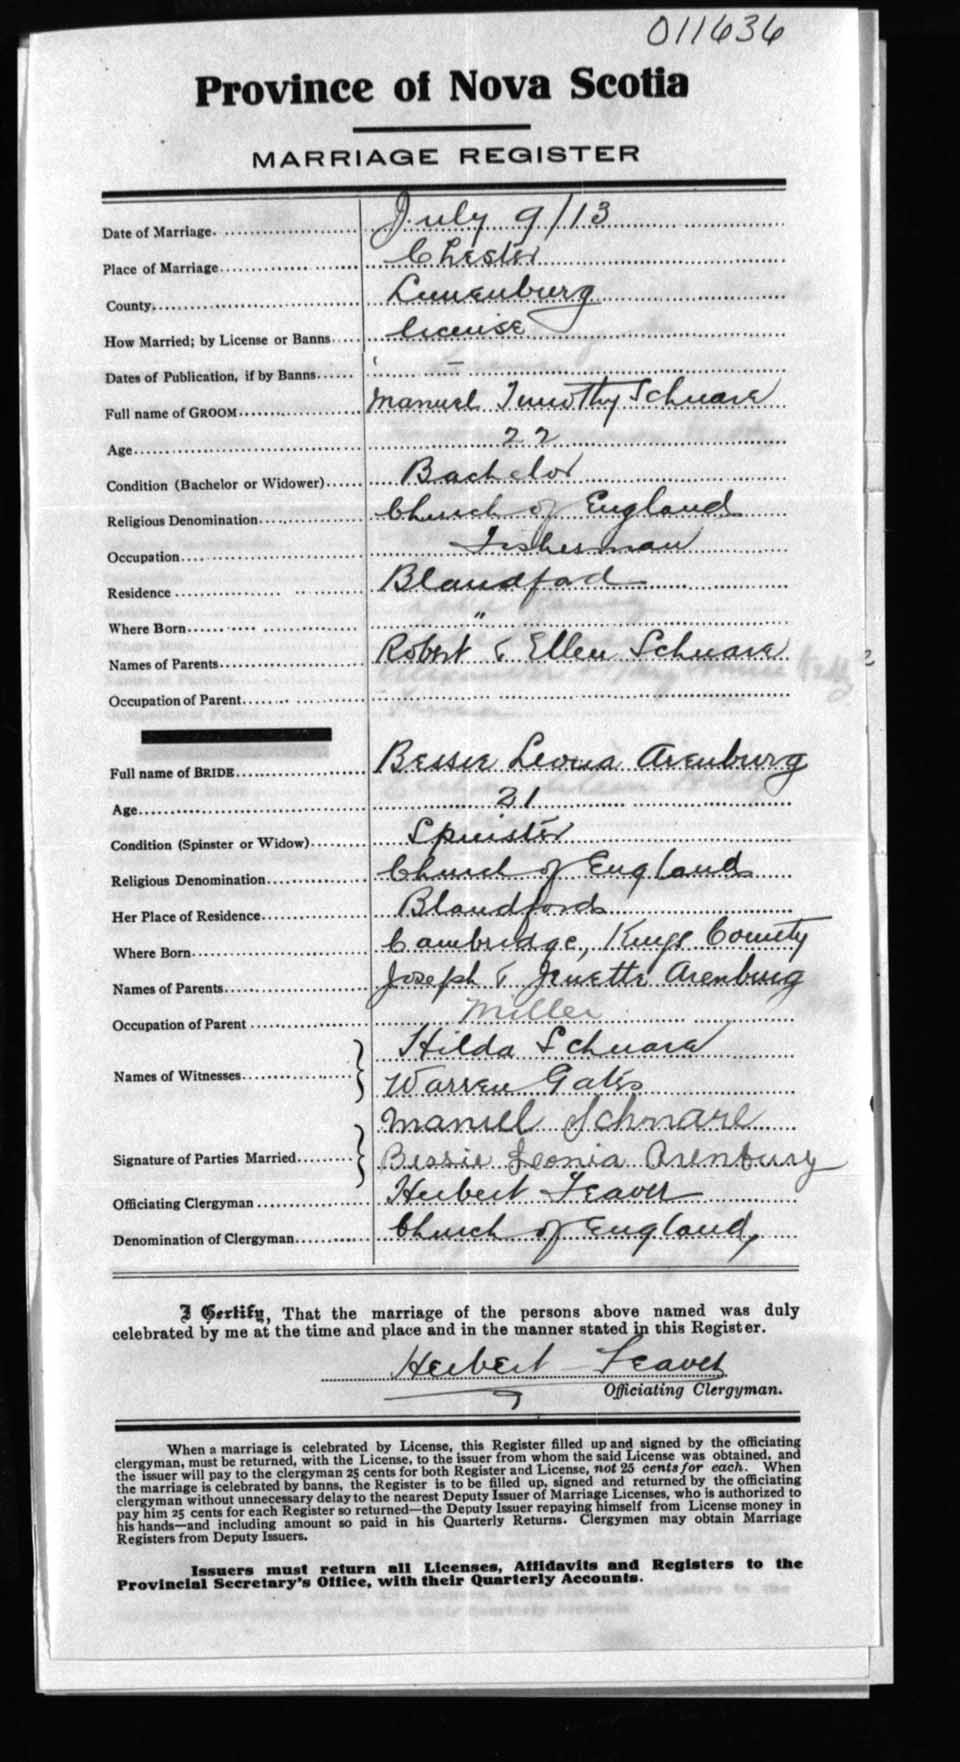 011636
Province of Nova Scotia
MARRIAGE REGISTER
Date of Marriage. July 9/13
Place of Marriage Chester
County Lunenburg
How Married; by License or Banns License
Dates of Publication, if by Banns —
Full name of GROOM Manuel Timothy Schnare
Age 22
Condition (Bachelor or Widower) Bachelor
Religious Denomination Church of England
Occupation Fisherman
Residence Blandford
Where Born "
Names of Parents Robert & Ellen Schnare
Occupation of Parent
Full name of BRIDE Bessie Leona Arenburg
Age 21
Condition (Spinster or Widow) Spinster
Religious Denomination Church of England
Her Place of Residence Blandford
Where Born Cambridge, Kings County
Names of Parents Joseph & Jenette Arenburg
Occupation of Parent Miller
Hilda Schnare
Names of Witnesses Warren Gates
Manuel Schnare
Signature of Parties Married Bessie Leonia Arenburg
Officiating Clergyman Herbert Leaver
Denomination of Clergyman Church of England,
I Certify, That the marriage of the persons above named was duly
celebrated by me at the time and place and in the manner stated in this Register.
Herbert Leaver
Officiating Clergyman.
When a marriage is celebrated by License, this Register filled up and signed by the officiating
clergyman, must be returned, with the License, to the issuer from whom the said License was obtained, and
the issuer will pay to the clergyman 25 cents for both Register and License, not 25 cents for each. When
the marriage is celebrated by banns, the Register is to be filled up, signed and returned by the officiating
clergyman without unnecessary delay to the nearest Deputy Issuer of Marriage Licenses, who is authorized to
pay him 25 cents for each Register so returned—the Deputy Issuer repaying himself from License money in
his hands—and including amount so paid in his Quarterly Returns. Clergymen may obtain Marriage
Registers from Deputy Issuers.
Issuers must return all Licenses, Affidavits and Registers to the
Provincial Secretary's Office, with their Quarterly Accounts.